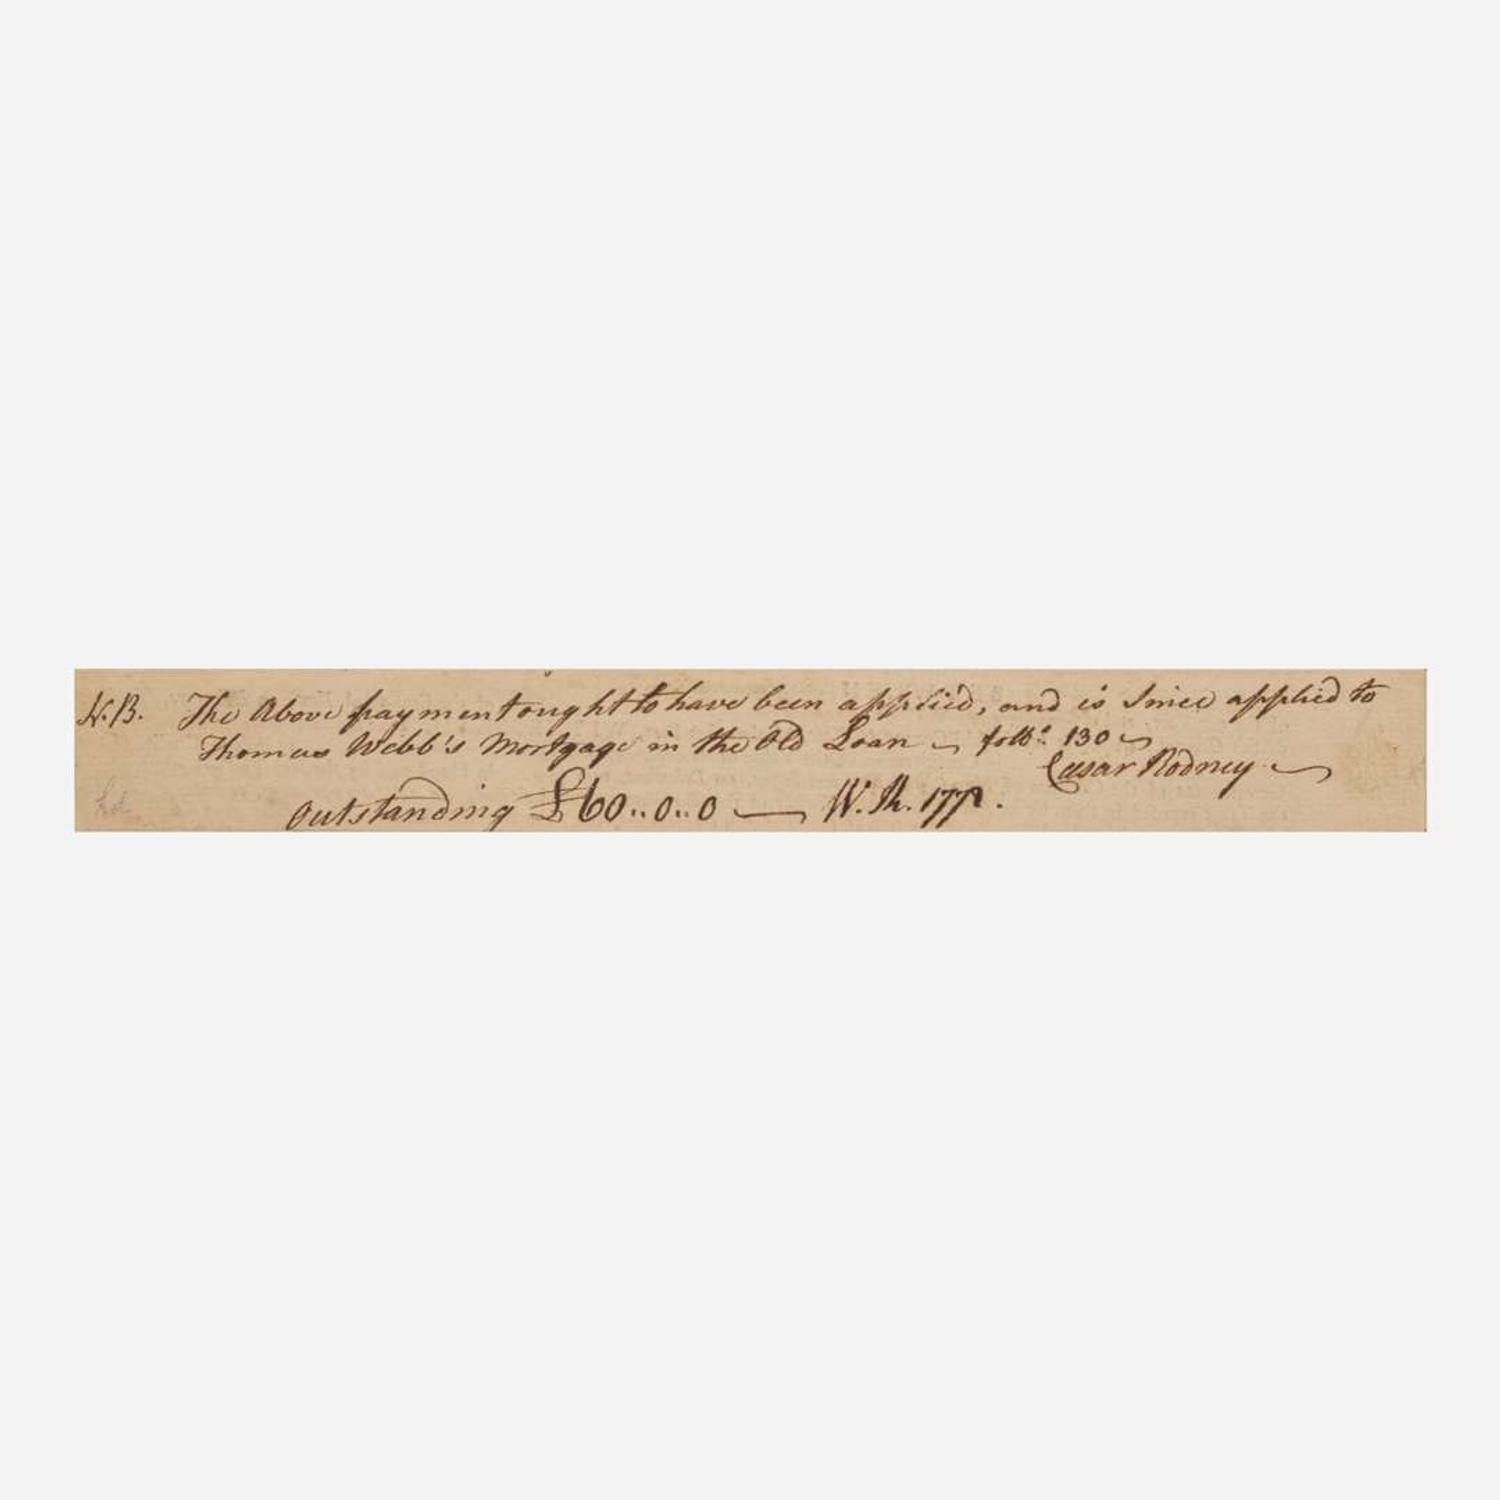 N.B. The Above payment ought to have been applied, and is Since applied to
Thomas Webb's Mortgage in the Old Loan ~ folio 130 ~
Cæsar Rodney
Outstanding £60..0..0 — W. Th. 1771.